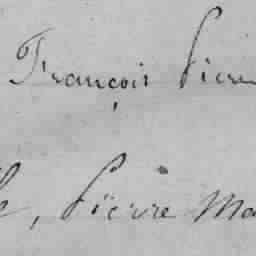 François Pierre
, Pierre Ma